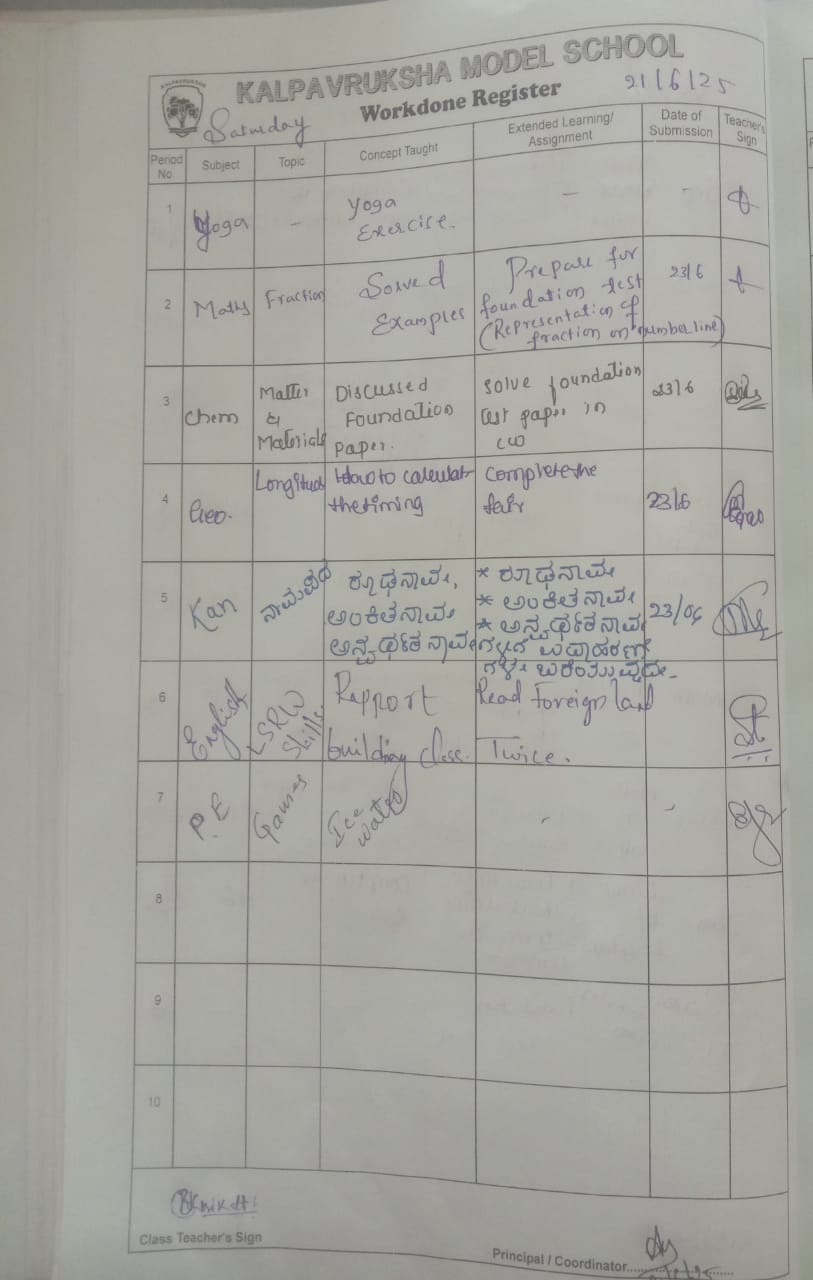 KALPAVRUKSHA MODEL SCHOOL
Workdone Register
21/6/25
Saturday
Period No. Subject Topic Concept Taught Extended Learning/ Assignment Date of Submission Teacher's Sign
1 Yoga - Yoga Exercise. - -
2 Maths Fraction Solved Examples Prepare for foundation test (Representation of fraction on number line) 23/6
3 Chem Matter & Materials Discussed Foundation paper. solve foundation test paper in CW 23/6
4 Geo. Longitud How to calculat the timing Complete the fair 23/6
5 Kan ನಾಮಪದ ರೂಢನಾಮ, ಅಂಕಿತನಾಮ ಅನ್ವರ್ಥಕನಾಮ * ರೂಢನಾಮ * ಅಂಕಿತನಾಮ * ಅನ್ವರ್ಥಕನಾಮ 23/06
6 English LSRW Skills Rapport building class. Read Foreign land Twice.
7 P.E Games Ice water - -
8
9
10
Class Teacher's Sign
Principal / Coordinator